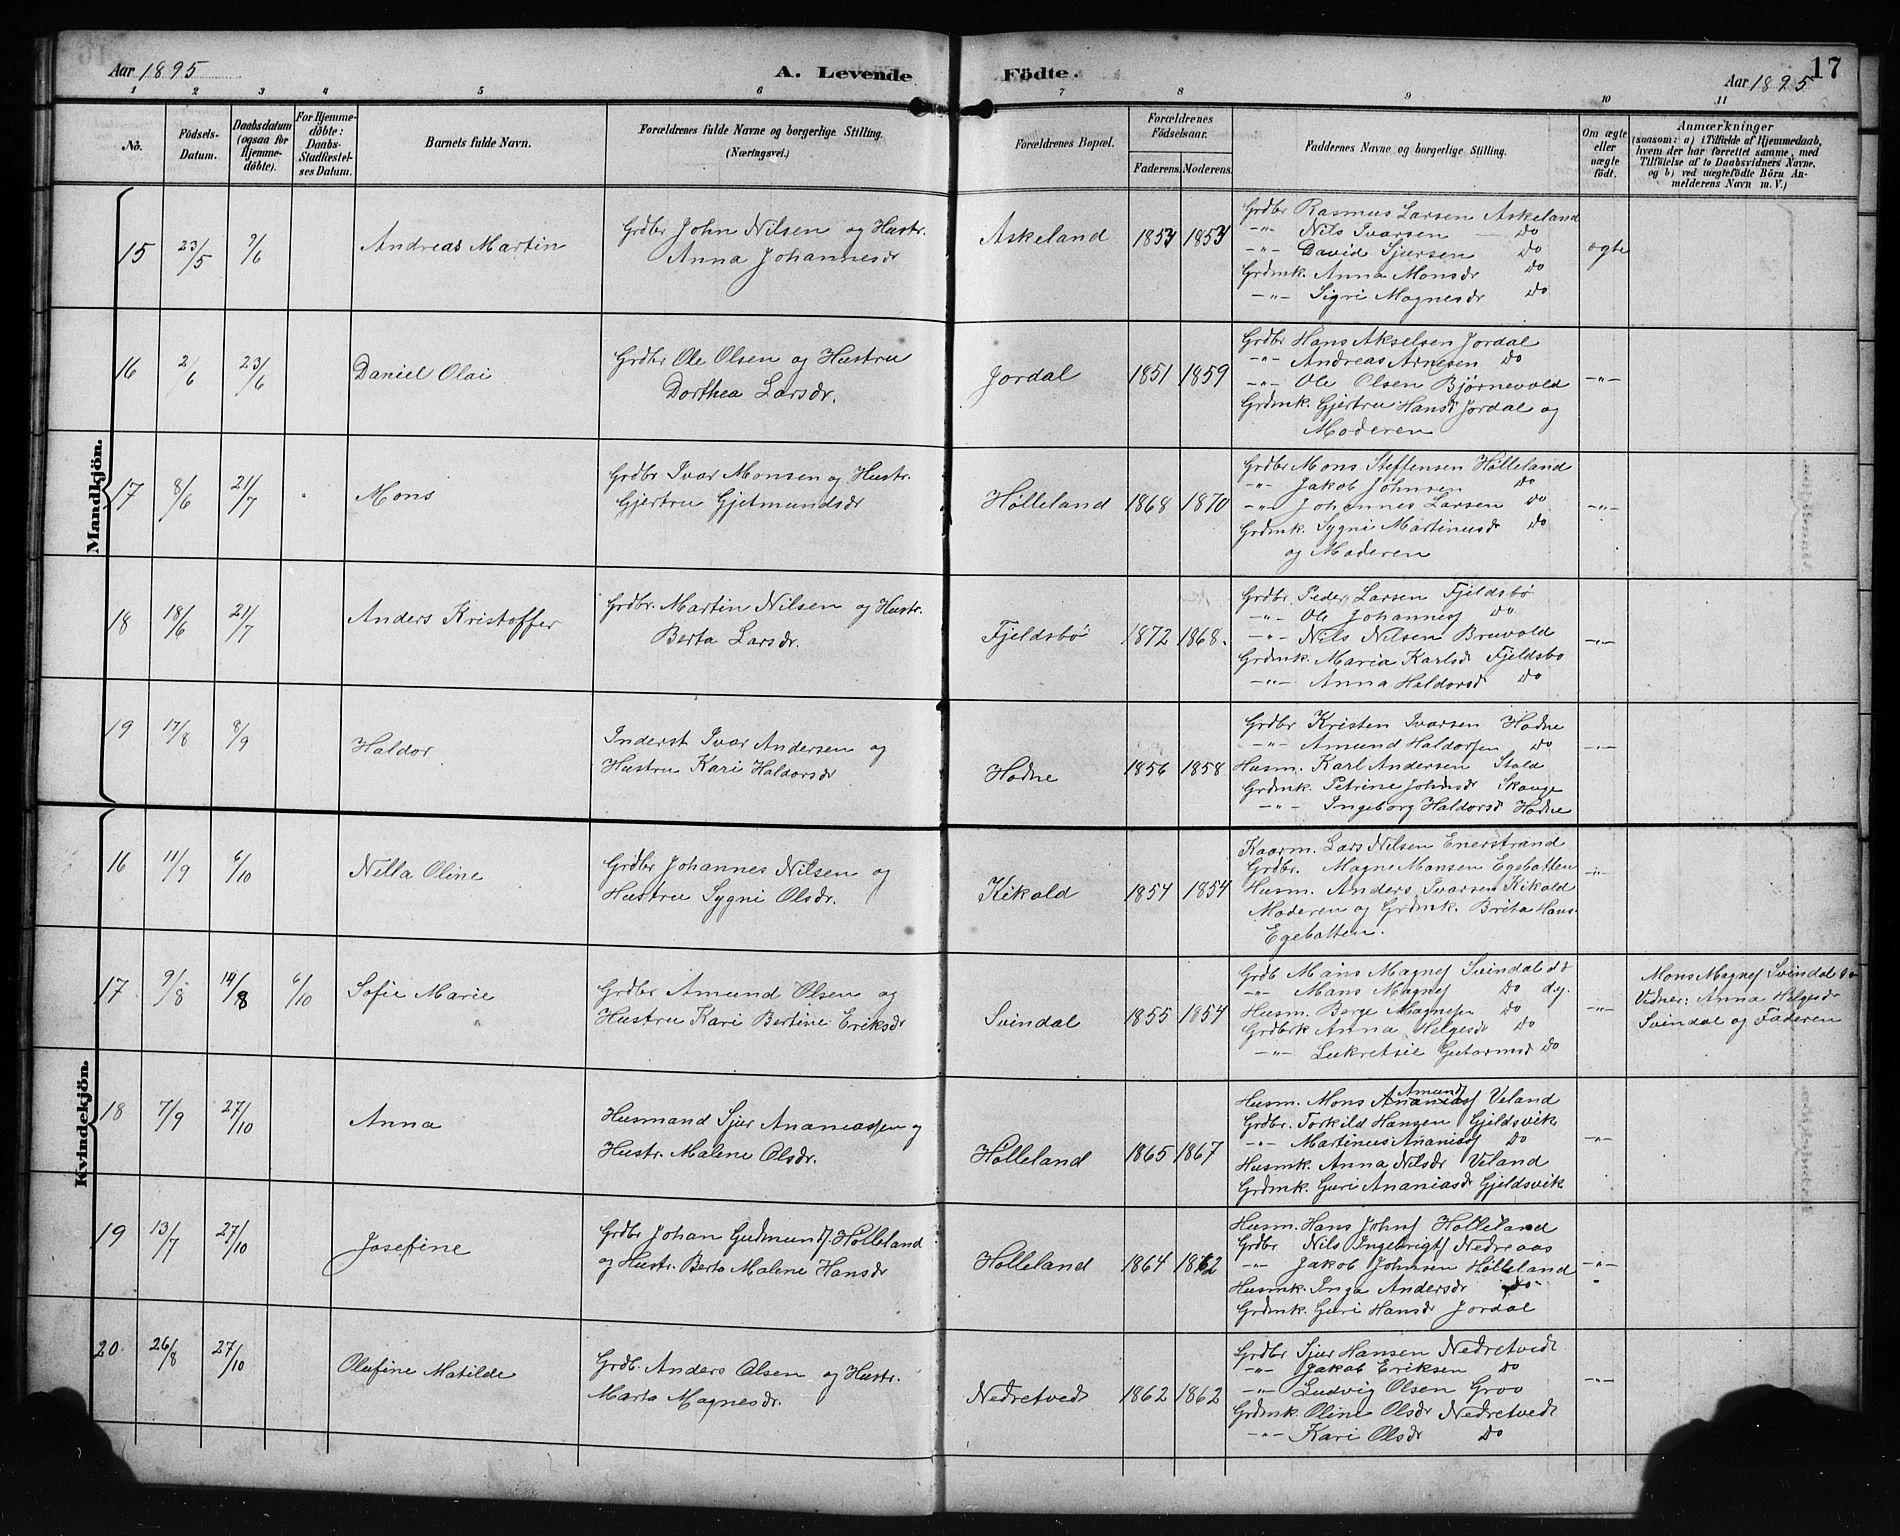 Aar 1895
A. Levende
Födte.
17
Aar 1895
1 2 3 4 5 6 7 8 9 10 11
No.
Födsels-
Datum.
Daabsdatum
(ogsaa for
Hjemme-
döbte).
For Hjemme-
döbte:
Daabs-
Stadfæstel-
ses Datum.
Barnets fulde Navn.
Forældrenes fulde Navne og borgerlige Stilling.
(Næringsvei.)
Forældrenes Bopæl.
Forældrenes
Födselsaar.
Faderens. Moderens.
Faddernes Navne og borgerlige Stilling.
Om ægte
eller
uægte
födt.
Anmærkninger
(saasom: a) i Tilfælde af Hjemmedaab,
hvem der har forrettet samme, med
Tilföielse af to Daabsvidners Navne,
og b) ved uægtefödte Börn An-
melderens Navn m. V.)
Mandkjön.
15 23/5 9/6 Andreas Martin
Grdbr John Nilsen og Hustr.
Anna Johannesdr
Askeland 1853 1853
Grdbr Rasmus Larsen Askeland
-"- Nils Ivarsen Do
-"- David Sjursen Do
Grdmk. Anna Monsdr Do
-"- Sigri Magnesdr Do
ægte
16 2/6 23/6 Daniel Olai
Grdbr Ole Olsen og Hustru
Dorthea Larsdr.
Jordal 1851 1859
Grdbr Hans Akselsen Jordal
-"- Andreas Arnesen Do
-"- Ole Olsen Bjørnevold
Grdmk. Gjertru Hansd Jordal og
Moderen
-"-
17 8/6 21/7 Mons
Grdbr Ivar Monsen og Hustr.
Gjertru Gjetmundsdr
Hølleland 1868 1870
Grdbr Mons Steffensen Hølleland
-"- Jakob Johnsen Do
-"- Johannes Larsen Do
Grdmk. Sygni Martinusdr Do
og Moderen
-"-
18 18/6 21/7 Anders Kristoffer
Grdbr. Martin Nilsen og Hustr.
Berta Larsdr.
Fjeldsbø 1872 1868.
Grdbr. Peder Larsen Fjeldsbø
-"- Ole Johannes Do
-"- Nils Nilsen Bruvold
Grdmk. Maria Karlsdr Fjeldsbø
-"- Anna Haldorsd Do
-"-
19 17/8 8/9 Haldor
Inderst Ivar Andersen og
Hustru Kari Haldorsdr
Hodne 1856 1858
Grdbr Kristen Ivarsen Hodne
-"- Amund Haldorsen Do
Husm. Karl Andersen Stold
Grdmk. Petrine Johnsdr Skauge
-"- Ingeborg Haldorsd Hodne
-"-
Kvindekjön.
16 11/9 6/10 Nilla Oline
Grdbr Johannes Nilsen og
Hustru Sygni Olsdr.
Kikold 1854 1854
Kaarm. Lars Nilsen Enerstrand
Grdbr. Magne Mansen Egebatten
Husm. Anders Ivarsen Kikold
Moderen og Grdmk. Brita Hans.
Egebatten.
-"-
17 9/8 14/8 6/10 Sofie Marie
Grdbr Amund Olsen og
Hustru Kari Bertine Eriksdr
Svindal 1855 1854
Grdb Mans Magnes Svindal
-"- Mans Magnes Do d.y.
Husm. Berge Magnesen Do
Grdbrk Anna Helgesdr Do
-"- Lukretsie Gutormsd Do
-"-
Mons Magnes Svindal
Vidner: Anna Helgesdr
Svindal og Faderen
18 7/9 27/10 Anna
Husmand Sjur Ananiassen og
Hustr. Malene Olsdr.
Hølleland 1865 1867
Amunds
Husm. Mons Ananias Veland
Grdbr. Torkild Hansen Gjeldsvik
-"- Martinus Ananias Do
Husmk. Anna Nilsdr Veland
Grdmk. Guri Ananiasdr Gjeldsvik
-"-
19 13/7 27/10 Josefine
Grdbr Johan Gudmunds. Hølleland
og Hustr. Berta Malene Hansdr
Hølleland 1864 1862
Husm. Hans Johns Hølleland
Grdbr Nils Ingebrigts Nedreaas
-"- Jakob Johnsen Hølleland
Husmk. Inga Andersdr Do
Grdmk. Guri Hansdr Jordal
-"-
20. 26/8 27/10 Olufine Matilde
Grdb. Anders Olsen og Hustr.
Marta Magnesdr.
Nedretvedt 1862 1862
Grdbr Sjur Hansen Nedretvedt
-"- Jakob Eriksen Do
-"- Ludvig Olsen Grov
Grdmk. Oline Olsdr Nedretvedt
-"- Kari Olsdr Do
-"-